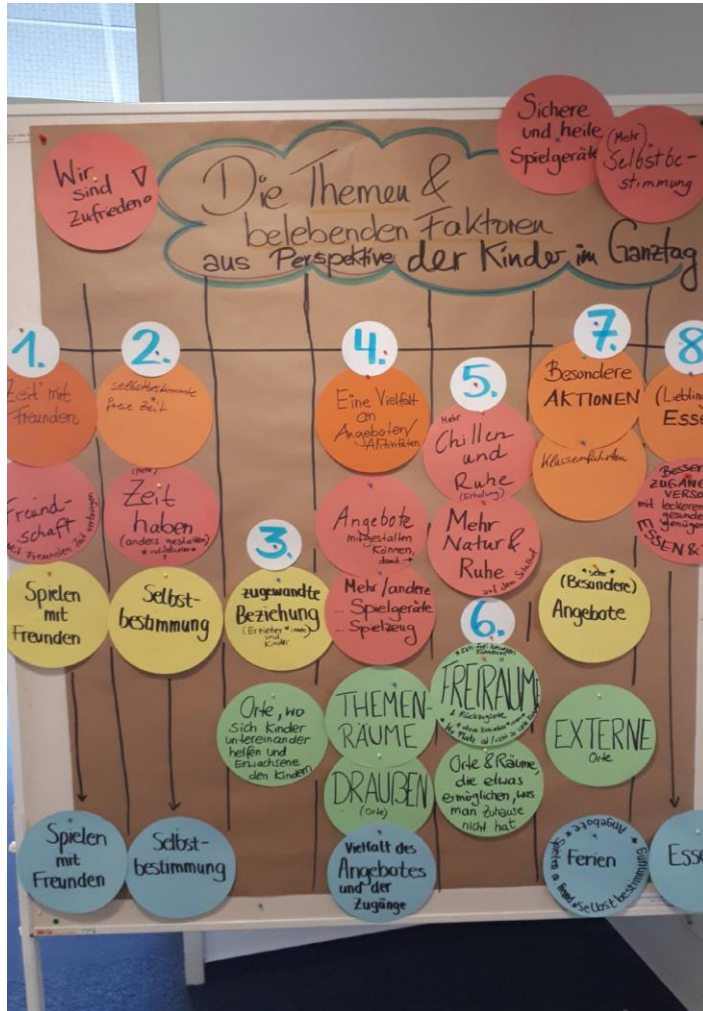 Wir
sind
Zufrieden
Die Themen &
belebenden Faktoren
aus Perspektive der Kinder im Ganztag
Sichere
und heile
Spielgeräte
(Mehr)
Selbstbe-
stimmung
1.
Zeit mit
Freunden
Freund-
schaft
mit Freunden Zeit verbringen
Spielen
mit
Freunden
Spielen
mit
Freunden
2.
selbstbestimmte
freie Zeit
(mehr)
Zeit
haben
(anders gestalten)
Selbst-
bestimmung
Selbst-
bestimmung
3.
zugewandte
Beziehung
(Erzieher*innen)
und
Kinder
Orte, wo
sich Kinder
untereinander
helfen und
Erwachsene
den Kindern
4.
Eine Vielfalt
an
Angeboten/
Aktivitäten
Angebote
mitgestalten
können,
damit →
Mehr/andere
... Spielgeräte
... Spielzeug
THEMEN-
RÄUME
DRAUßEN
(Orte)
Vielfalt des
Angebotes
und der
Zugänge
5.
Mehr
Chillen
und
Ruhe
(Erholung)
Mehr
Natur &
Ruhe
auf dem Schulhof
6.
FREIRÄUME
& Rückzugsorte
Orte & Räume,
die etwas
ermöglichen, was
man Zuhause
nicht hat
7.
Besondere
AKTIONEN
Klassenfahrten
(Besondere)
Angebote
EXTERNE
Orte
Ferien
Angebote * Spielen m. Freund * Selbstbestimmung
8
(Liebling
Esse
Besser
ZUGANG
VERSO
mit leckerem
gesunde
genügen
ESSEN &
Esse